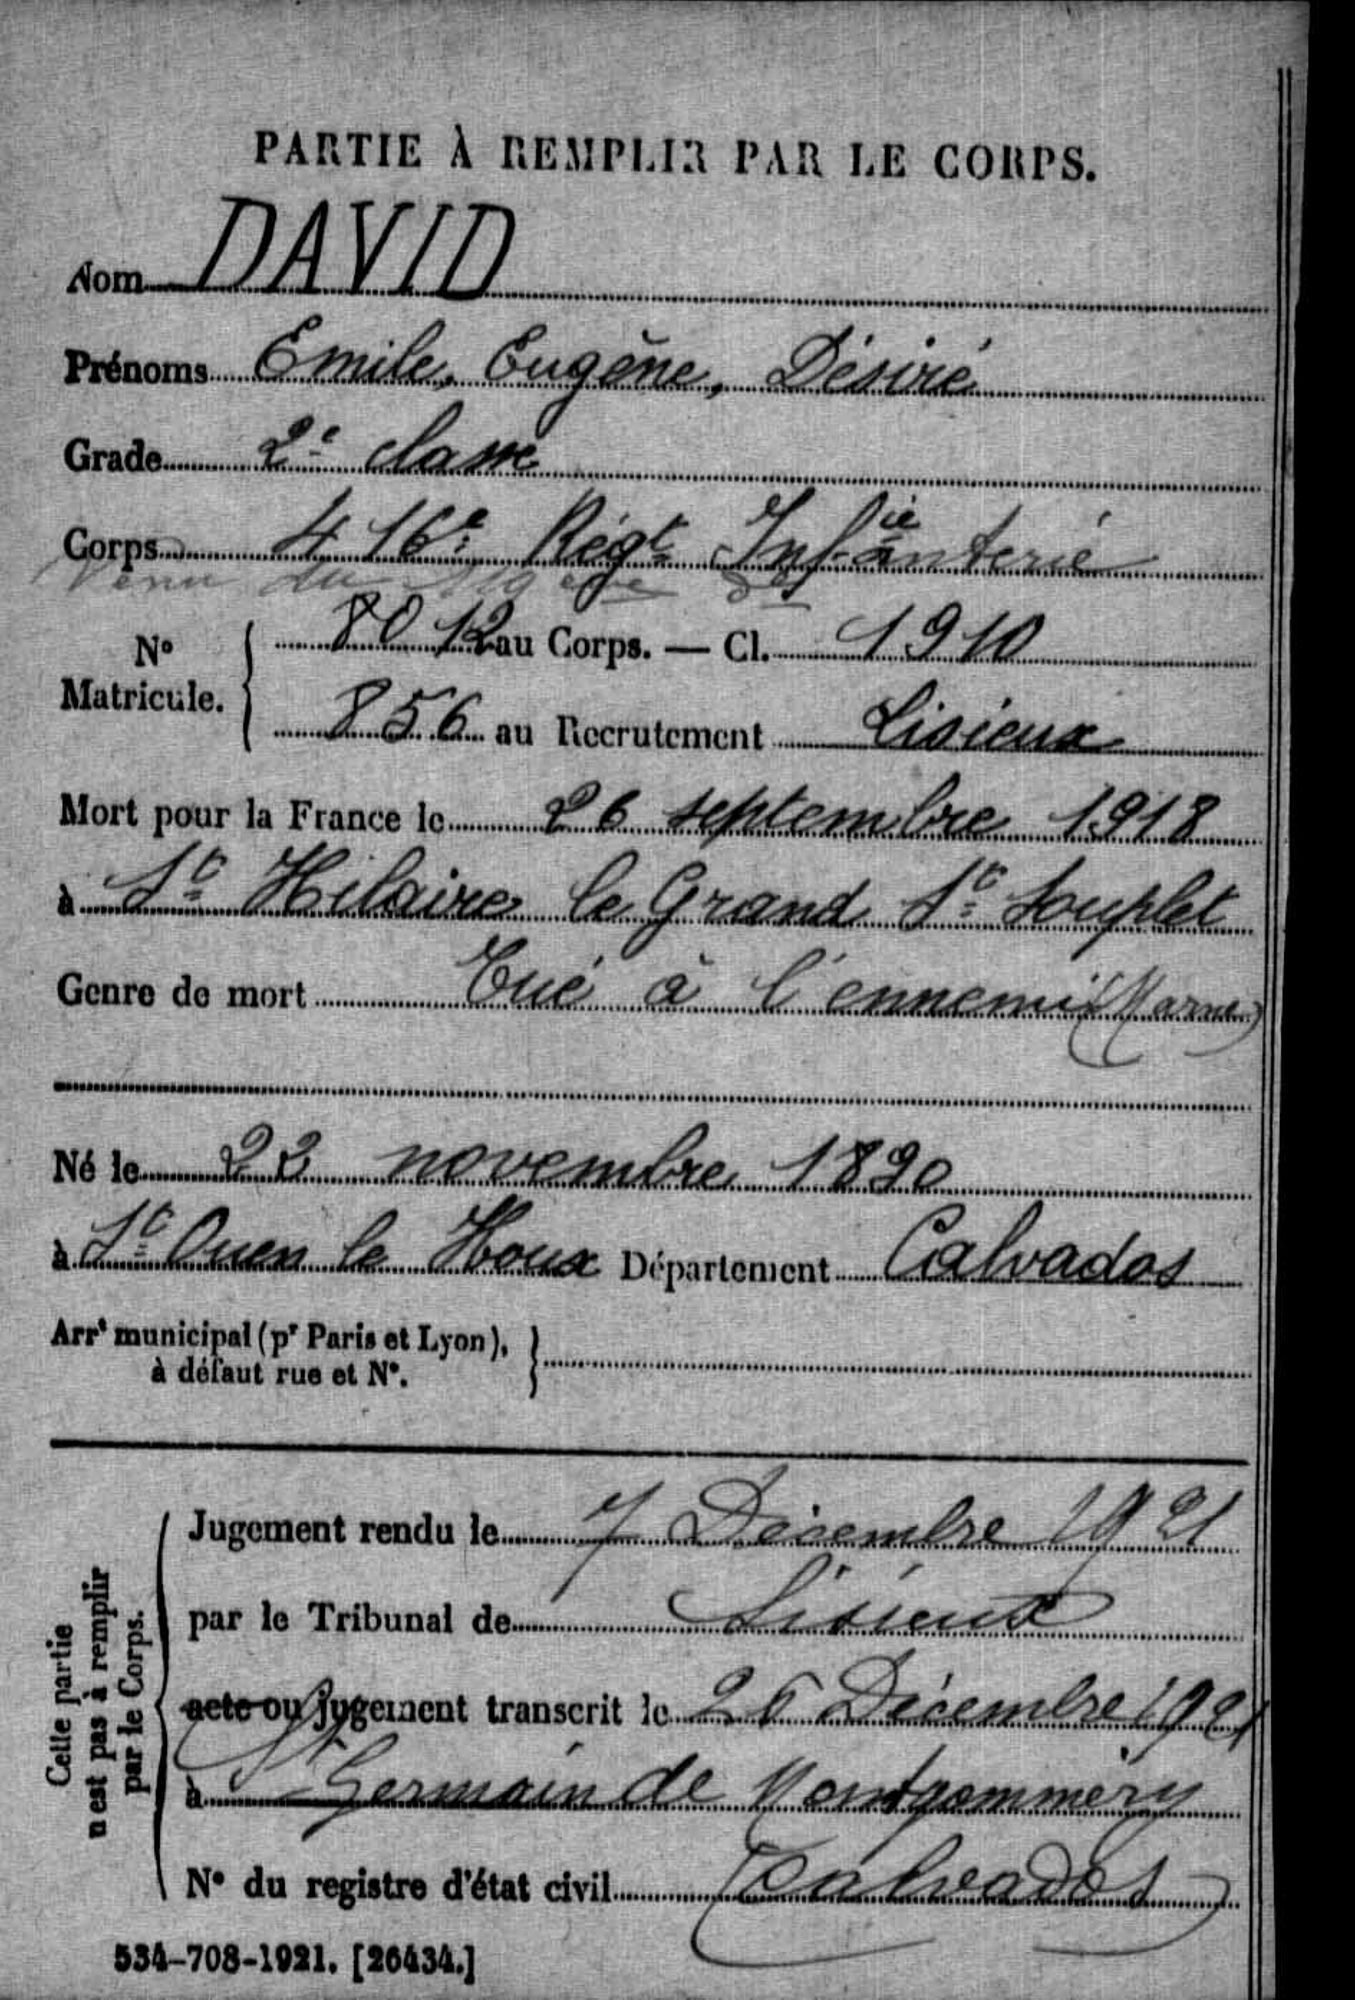 PARTIE À REMPLIR PAR LE CORPS.
Nom DAVID
Prénoms Emile, Eugène, Désiré
Grade 2e classe
Corps 416e Régt Infanterie
Venu du
N° Matricule. 8012 au Corps. — Cl. 1910
856 au Recrutement Lisieux
Mort pour la France le 26 septembre 1918
à St Hilaire le Grand St Souplet
Genre de mort Tué à l'ennemi (Marne)
Né le 22 novembre 1890
à St Ouen le Houx Département Calvados
Arrt municipal (pr Paris et Lyon),
à défaut rue et N°.
Cette partie
n'est pas à remplir
par le Corps.
Jugement rendu le 7 Décembre 1921
par le Tribunal de Lisieux
acte ou jugement transcrit le 26 Décembre 1921
à St Germain de Montgommery
N° du registre d'état civil (Calvados)
534-708-1921. [26434.]